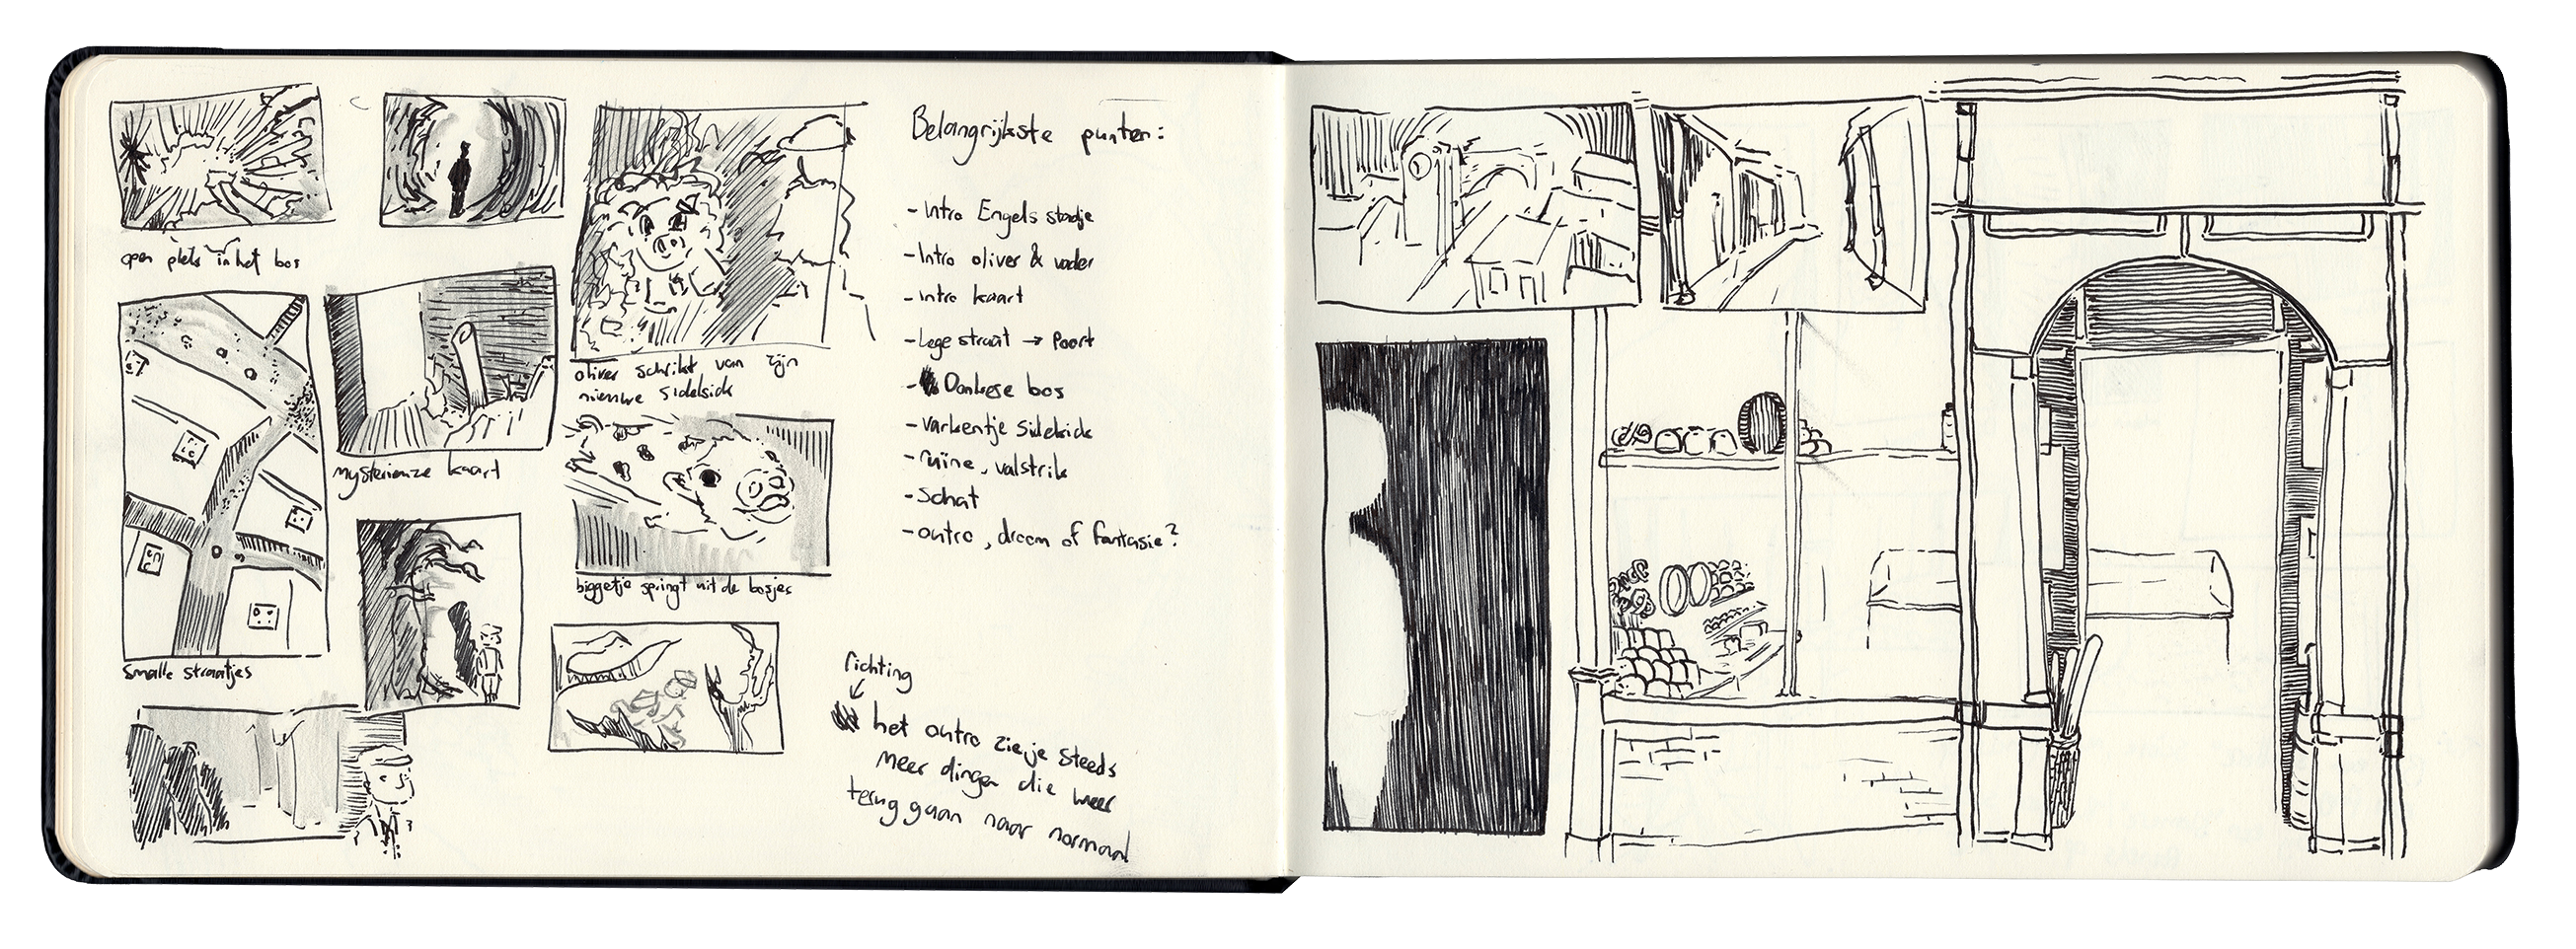 open plek in het bos
smalle straatjes
mysterieuze kaart
oliver schrikt van zijn
nieuwe sidekick
biggetje springt uit de bosjes
Belangrijkste punten:
- Intro Engels stadje
- Intro oliver & vader
- Intro kaart
- Lege straat → Poort
- Donkere bos
- varkentje sidekick
- ruïne, valstrik
- Schat
- outro, droom of fantasie?
richting
het outro zie je steeds
meer dingen die weer
terug gaan naar normaal